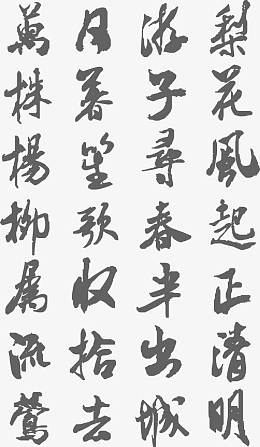 梨花風起正清明
游子尋春半出城
日暮笙歌收拾去
萬株楊柳屬流鶯